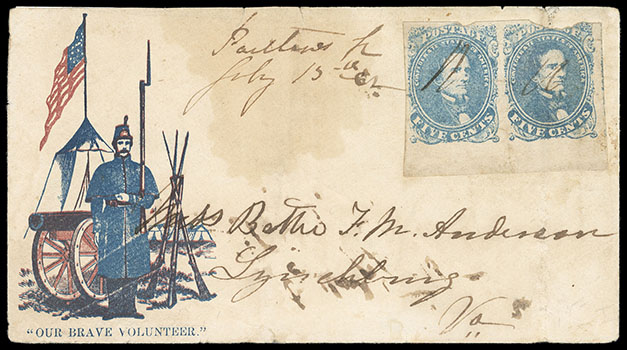 July 13th
POSTAGE
CONFEDERATE STATES OF AMERICA
FIVE CENTS
POSTAGE
CONFEDERATE STATES OF AMERICA
FIVE CENTS
Miss Bettie F. M. Anderson
Lynchburg
Va
"OUR BRAVE VOLUNTEER."